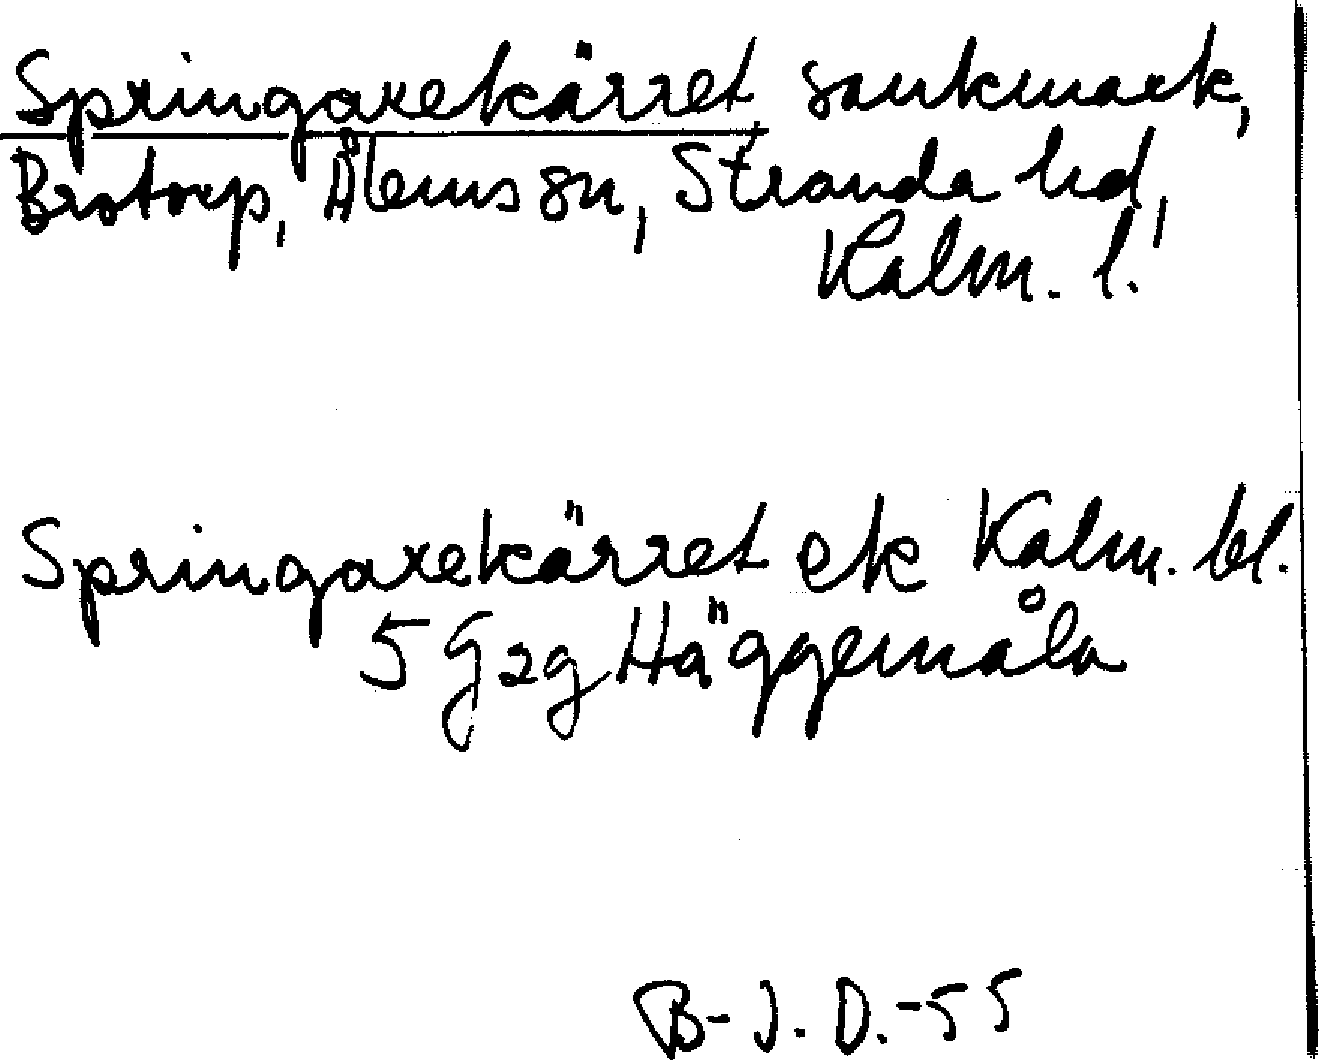 Springaxekärret sankmark,
Brotorp, Ålems sn, Stranda hd,
Kalm. l.
Springaxekärret ek Kalm. bl.
5 G 2g Häggemåla
B-J. D.-55